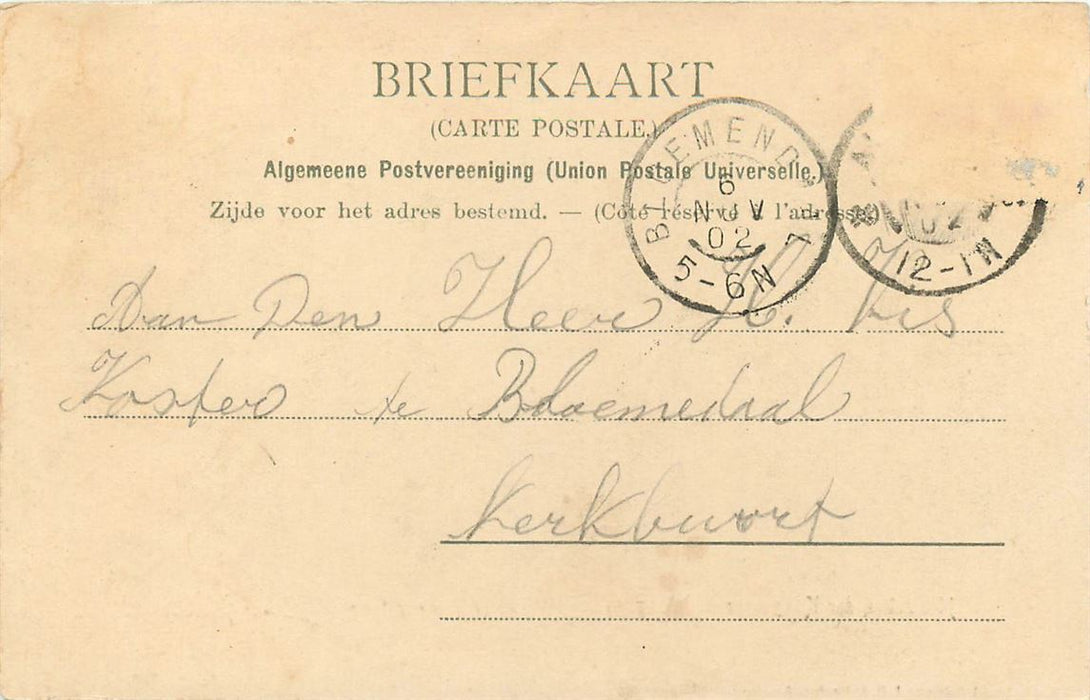 BRIEFKAART
(CARTE POSTALE.)
Algemeene Postvereeniging (Union Postale Universelle.)
Zijde voor het adres bestemd. — (Côté réservé à l'adresse.)
BLOEMENDAAL
6
NOV
02
5-6N
02
12-1N
Aan Den Heer H. Vis
Koster te Bloemedaal
Kerkbuurt